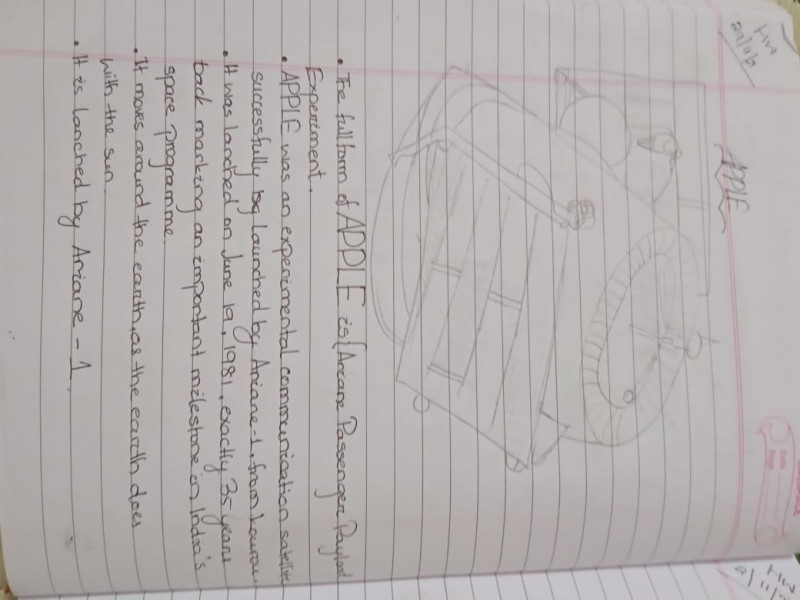 HW
APPLE
• The full form of APPLE is (Ariane Passenger Payload
Experiment.
• APPLE was an experimental communication satellite
successfully launched by Ariane-1, from kourou
• It was lanched on June 19, 1981, exactly 35 years
back marking an important milestone in India's
space programme.
• It moves around the earth, as the earth does
with the sun.
• It is lanched by Ariane - 1.
HW